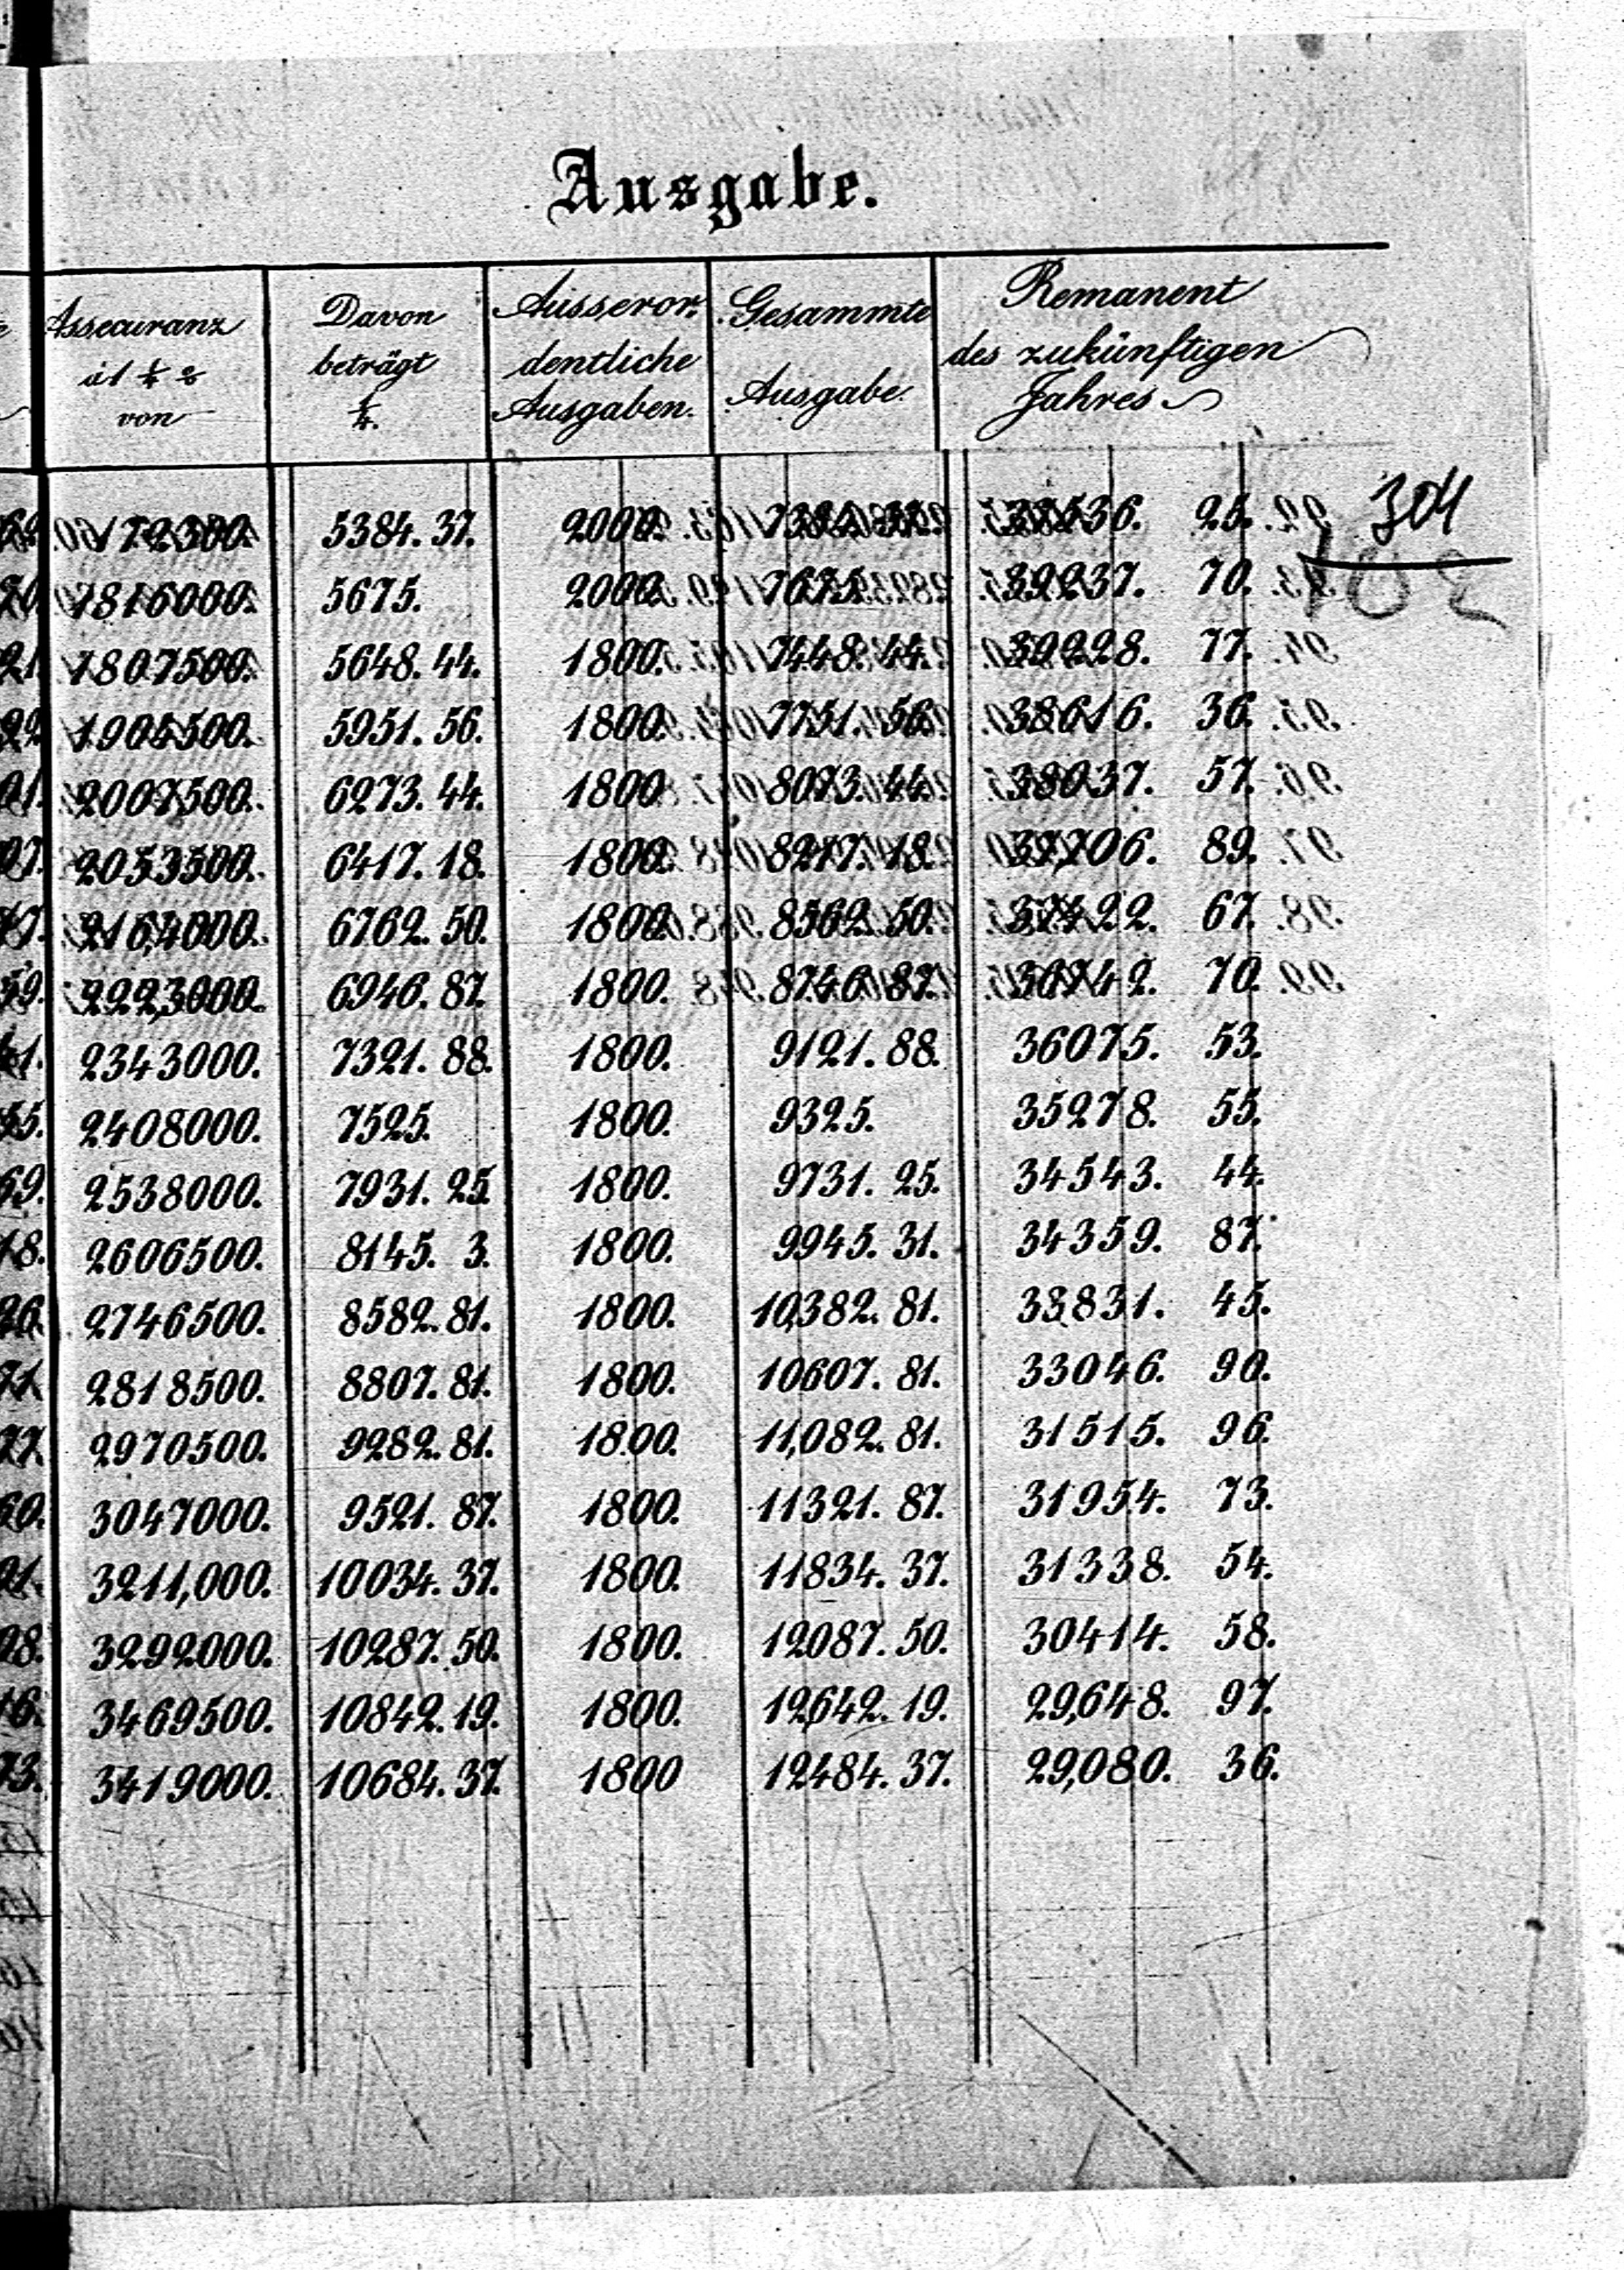 Ausgabe.
Assecuranz à 1 1/4 % von | Davon beträgt 1/4. | Ausseror- dentliche Ausgaben. | Gesammte Ausgabe. | Remanent des zukünftigen Jahres
304
5384. 37. | 2000. | 36. 25.
1816000. | 5675. | 2000. | 7675. | 39237. 70.
1807500. | 5648. 44. | 1800. | 7448. 44. | 39228. 77.
1904500. | 5951. 56. | 1800. | 7751. 56. | 38616. 36.
2007500. | 6273. 44. | 1800. | 8073. 44. | 38037. 57.
2053500. | 6417. 18. | 1800. | 8217. 18. | 37,706. 89.
2164000. | 6762. 50. | 1800. | 8562. 50. | 37422. 67.
2223000. | 6946. 87. | 1800. | 8746. 87. | 36742. 70.
2343000. | 7321. 88. | 1800. | 9121. 88. | 36075. 53.
2408000. | 7525. | 1800. | 9325. | 35278. 55.
2538000. | 7931. 25. | 1800. | 9731. 25. | 34543. 44.
2606500. | 8145. 3. | 1800. | 9945. 31. | 34359. 87.
2746500. | 8582. 81. | 1800. | 10,382. 81. | 33831. 45.
2818500. | 8807. 81. | 1800. | 10607. 81. | 33046. 90.
2970500. | 9282. 81. | 1800. | 11,082. 81. | 31515. 96.
3047000. | 9521. 87. | 1800. | 11321. 87. | 31954. 73.
3211,000. | 10034. 37. | 1800. | 11834. 37. | 31338. 54.
3292000. | 10287. 50. | 1800. | 12087. 50. | 30414. 58.
3469500. | 10842. 19. | 1800. | 12642. 19. | 29,648. 97.
3419000. | 10684. 37. | 1800 | 12484. 37. | 29,080. 36.